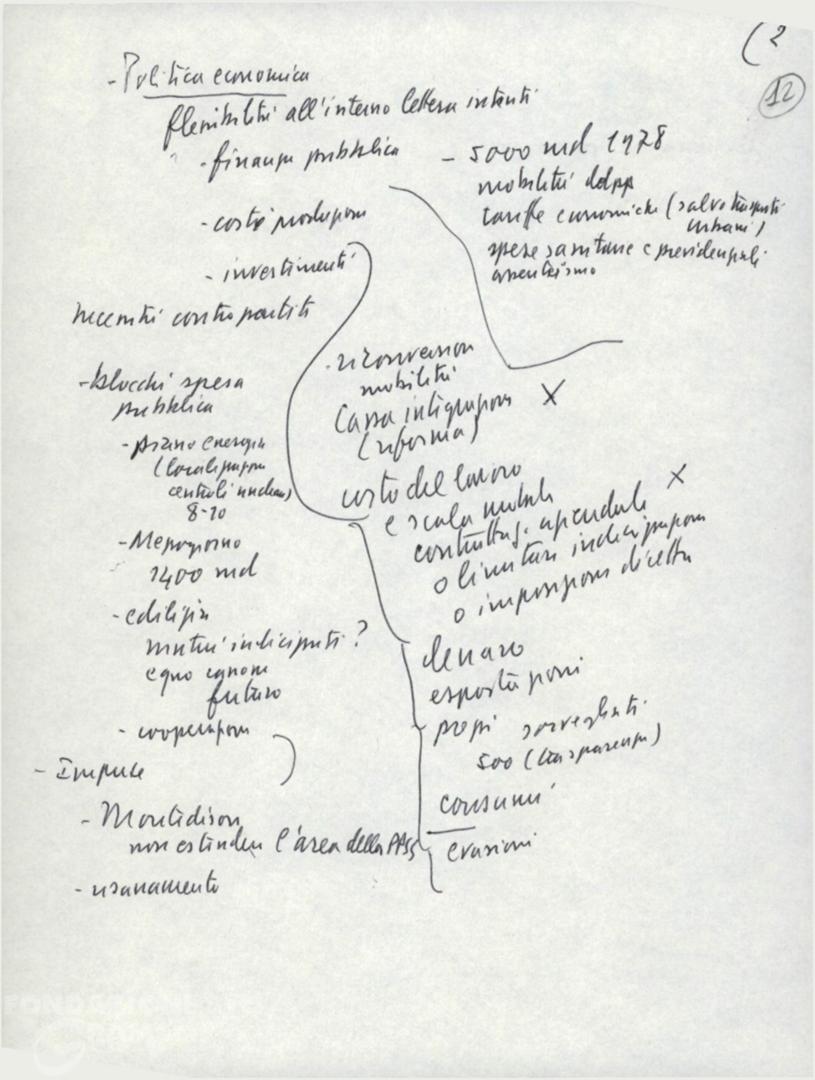 (2
12
- Politica economica
flessibilità all'interno lettera intenti
- finanza pubblica
- costi produzione
- investimenti
- 5000 md 1978
mobilità del pp
tariffe economiche (salvo trasporti
urbani)
spese sanitarie e previdenziali
assenteismo
necessità contropartite
- blocchi spesa
pubblica
- piano energia
(localizzazione
centrali nucleari)
8-10
- Mezzogiorno
1400 md
- edilizia
mutui indicizzati?
equo canone
futuro
- cooperazione
- Imprese
- Montedison
non estendere l'area della PPSS
- risanamento
- riconversione
mobilità
Cassa integrazione X
(riforma)
costo del lavoro
e scala mobile
contrattaz. aziendale X
o limitare indicizzazione
o imposizione diretta
denaro
esportazioni
prezzi sorvegliati
500 (trasparenza)
consumi
evasioni
FONDAZIONE